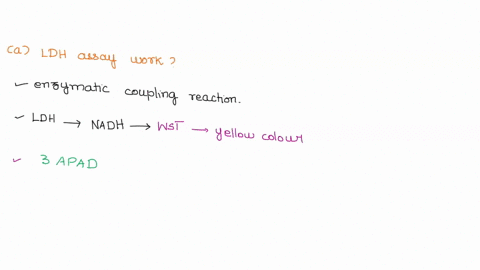 (a) LDH assay work?
✓ enzymatic coupling reaction.
✓ LDH → NADH → WST → yellow colour
✓ 3 APAD